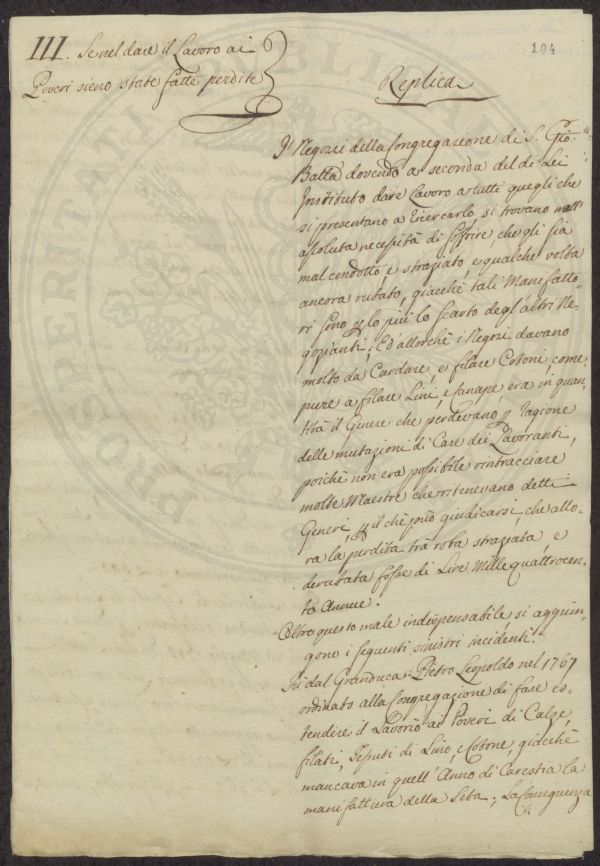 III. Se nel dare il Lavoro ai
Poveri sieno state fatte perdite
104
Replica
I Negozi della Congregazione di S. Gio:
Batta dovendo a seconda del di Lei
Instituto dare Lavoro a tutti quegli che
si presentano a ricercarlo, si trovano nell'
assoluta necessità di soffrire, che gli sia
mal condotto, e straziato, e qualche volta
ancora rubato, giacchè tali Manifatto-
ri sono p lo più lo scarto degl'altri Ne-
gozianti; Ed allorchè i Negozi davano
molto da Cardare, e filare Cotoni, come
pure a filare Lini, e Canape, era in quan-
tità il Genere che perdevano p ragione
delle mutazioni di Case dei Lavoranti,
poichè non era possibile rintracciare
molte Maestre che ritenevano detti
Generi, p il chè può giudicarsi, che allo-
ra la perdita trà roba straziata, e
derubata fosse di Lire Mille quattrocen-
to Annue.
Oltre questo male indispensabile, si aggiun-
gono i seguenti sinistri incidenti.
Fù dal Granduca Pietro Leopoldo nel 1767
ordinato alla Congregazione di fare es-
tendere il Lavorio ai Poveri di Calze,
filati, Tessuti di Lino, e Cotone, giacchè
mancava in quell'Anno di Carestia la
manifattura della Seta; La Conseguenza
PROSPERITATI PUBLICAE